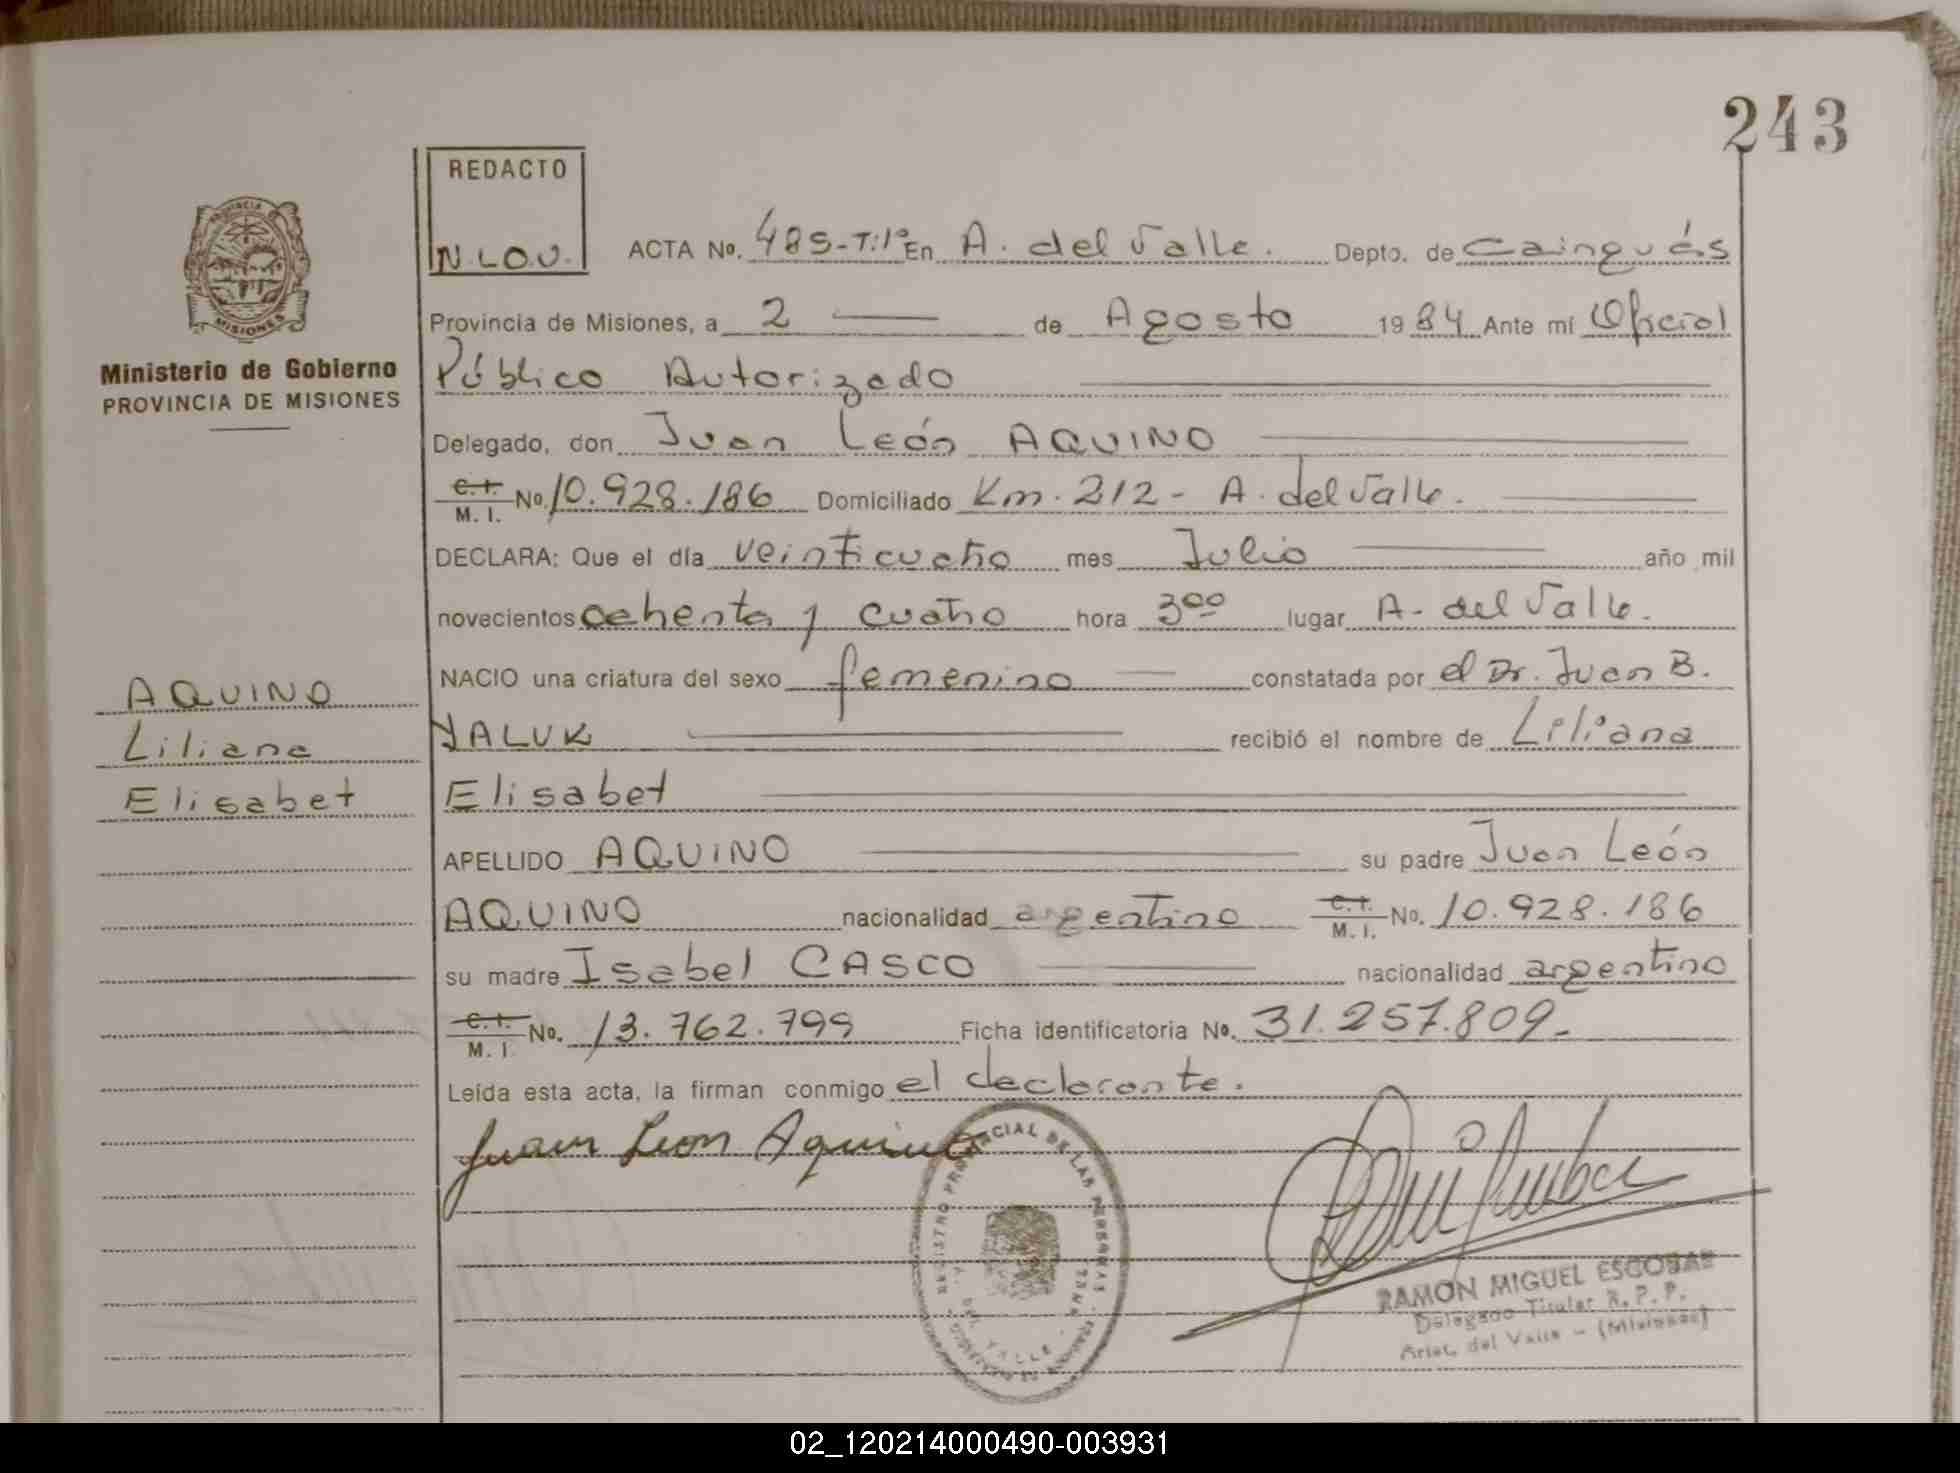 243
REDACTO
N.L.O.V.
PROVINCIA DE
MISIONES
Ministerio de Gobierno
PROVINCIA DE MISIONES
ACTA No. 485-T:1º En A. del Valle. Depto. de Cainguás
Provincia de Misiones, a 2 de Agosto 1984 Ante mí Oficial
Público Autorizado
Delegado, don Juan León AQUINO
C.I. M.I. No. 10.928.186 Domiciliado Km. 212 - A. del Valle.
DECLARA: Que el día veinticuatro mes Julio año mil
novecientos ochenta y cuatro hora 3ºº lugar A. del Valle.
NACIO una criatura del sexo femenino constatada por el Dr. Juan B.
YALUK recibió el nombre de Liliana
Elisabet
AQUINO
Liliana
Elisabet
APELLIDO AQUINO su padre Juan León
AQUINO nacionalidad argentino C.I. M.I. No. 10.928.186
su madre Isabel CASCO nacionalidad argentino
C.I. M.I. No. 13.762.799 Ficha identificatoria No. 31.257.809.
Leída esta acta, la firman conmigo el declarante.
Juan Leon Aquino
REGISTRO PROVINCIAL DE LAS PERSONAS
A. DEL VALLE
RAMON MIGUEL ESCOBAR
Delegado Titular R. P. P.
Arist. del Valle - (Misiones)
02_120214000490-003931